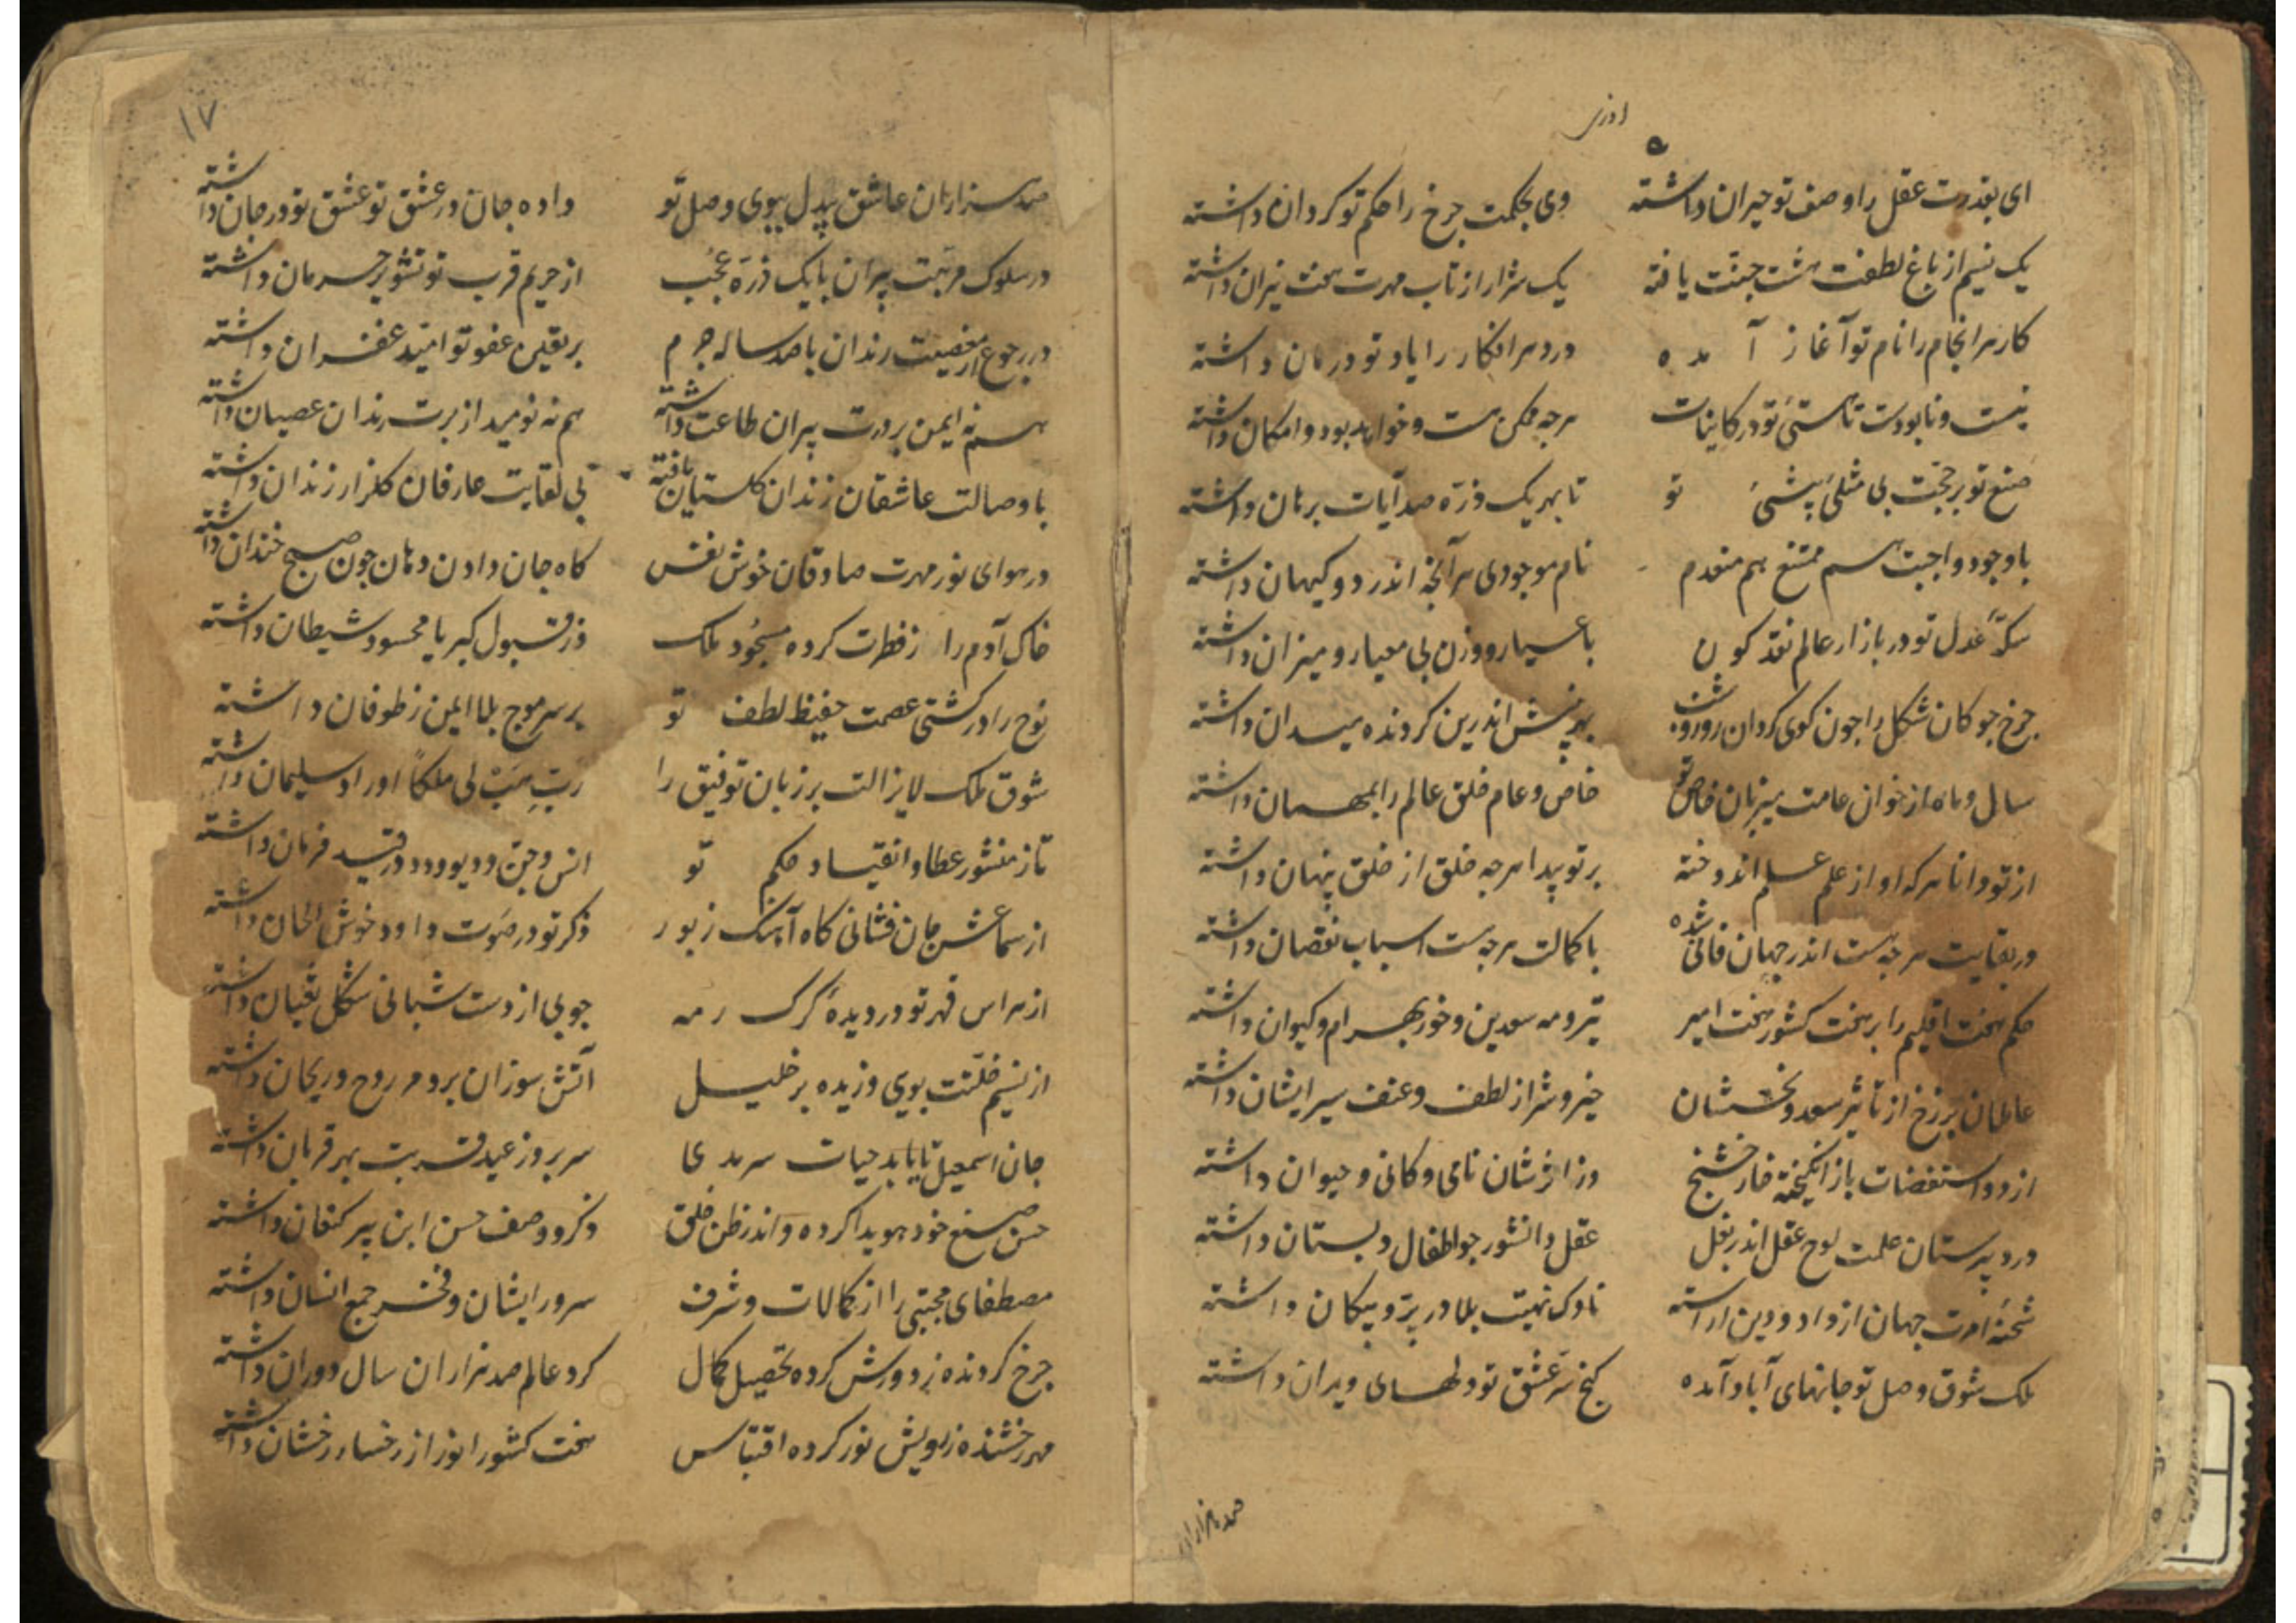 اذری
ای بقدرت عقل را وصف تو حیران داشته وی بحکمت چرخ را حکم تو کردان داشته
یک نسیم از باغ لطفت هشت جنّت یافته یک شرار از تاب مهرت هفت نیران داشته
کار هر انجام را نام تو آغاز آمده درد هر افکار را یاد تو درمان داشته
نیست و نابودست تا هستئ تو در کاینات هرچه ممکن هست و خواهد بود و امکان داشته
صنع تو بر حجّت بی مثلی تو تا بهر یک ذرّه صد آیات برهان داشته
با وجود واجبت هم ممتنع هم منعدم نام موجودی هر آنچه اندر دو کیهان داشته
سکّهٔ عدل تو در بازار عالم نقد کون با عیار و وزن بی معیار و میزان داشته
چرخ چوکان شکل را چون کوی کردان روز و شب اندرین کردنده میدان داشته
سال و ماه از خوان عامت میزبان خاص تو خاص و عام خلق عالم را بمهمان داشته
از تو دانا هرکه او از علم علم اندوخته بر تو پیدا هرچه خلق از خلق پنهان داشته
در بقایت هرچه هست اندر جهان فانی شده با کمالت هرچه هست اسباب نقصان داشته
حکم هفت اقلیم را بر هفت کشور هفت امیر تیر و مه سعدین و خور بهرام و کیوان داشته
عاملان برزخ از تأثیر سعد و نحسشان خیر و شر از لطف و عنف سیر ایشان داشته
از دو باز انکیخته وز اثرشان نامی و کانی و حیوان داشته
در دبیرستان علمت لوح عقل اندر بغل عقل دانشور چو اطفال دبستان داشته
شحنهٔ امرت جهان از داد و دین اراسته ناوک بلا در پرّ و پیکان داشته
ملک شوق وصل تو جانهای آباد آمده کنج سرّ عشق تو دلهای ویران داشته
صد هزاران
۱۷
صد هزاران عاشق بیدل ببوی وصل تو داده جان در عشق تو عشق تو در جان داشته
در سلوک مرتبت پیران با یک ذرّه عجب از حریم قرب تو تشویر حرمان داشته
در رجوع از معصیت رندان با صد ساله جرم بر یقین عفو تو امّید غفران داشته
هم نه ایمن بر درت پیران طاعت داشته هم نه نومید از برت رندان عصیان داشته
با وصالت عاشقان زندان کلستان یافته بی لقایت عارفان کلزار زندان داشته
در هوای نور مهرت صادقان خوش نفس کاه جان دادن دهان چون صبح خندان داشته
خاک آدم را ز فطرت کرده مسجُود ملک وز قبول کبریا محسود شیطان داشته
نوح را در کشتی عصمت حفیظ لطف تو بر سر موج بلا ایمن ز طوفان داشته
شوق ملک لایزالت بر زبان توفیق را ربّ هَبْ لی ملکاً اوراد سلیمان داشته
تا ز منشور عطا و انقیاد حکم تو انس و جنّ و دیو و دد در قید فرمان داشته
از سماعش جان فشانی کاه آهنک زبور ذکر تو در صَوت داود خوش الحان داشته
از هراس قهر تو در دیدهٔ کرک رمه چوبی از دست شبانی شکل ثعبان داشته
از نسیم خلّتت بویی وزیده بر خلیل آتش سوزان برو مر روح و ریحان داشته
جان اسمعیل تا یابد حیات سرمدی سر بروز عید قربت بهر قربان داشته
حسن صنع خود هویدا کرده و اندر ظن خلق ذکر و وصف حسن ابن پیر کنعان داشته
مصطفای مجتبی را از کمالات و شرف سرور ایشان و فخر جمع انسان داشته
چرخ کردنده ز دورش کرده تحصیل کمال کرد عالم صد هزاران سال دوران داشته
مهر رخشنده ز رویش نور کرده اقتباس هفت کشور را نور از رخسار رخشان داشته